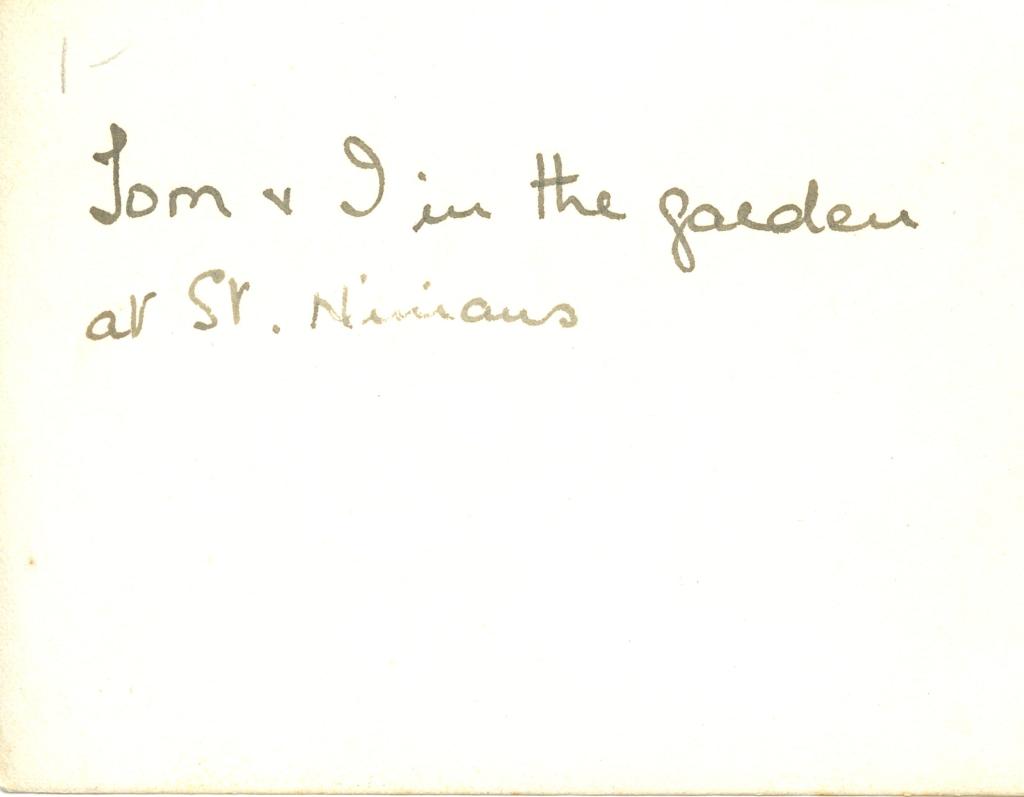 1-
Tom & I in the garden
at St. Ninians